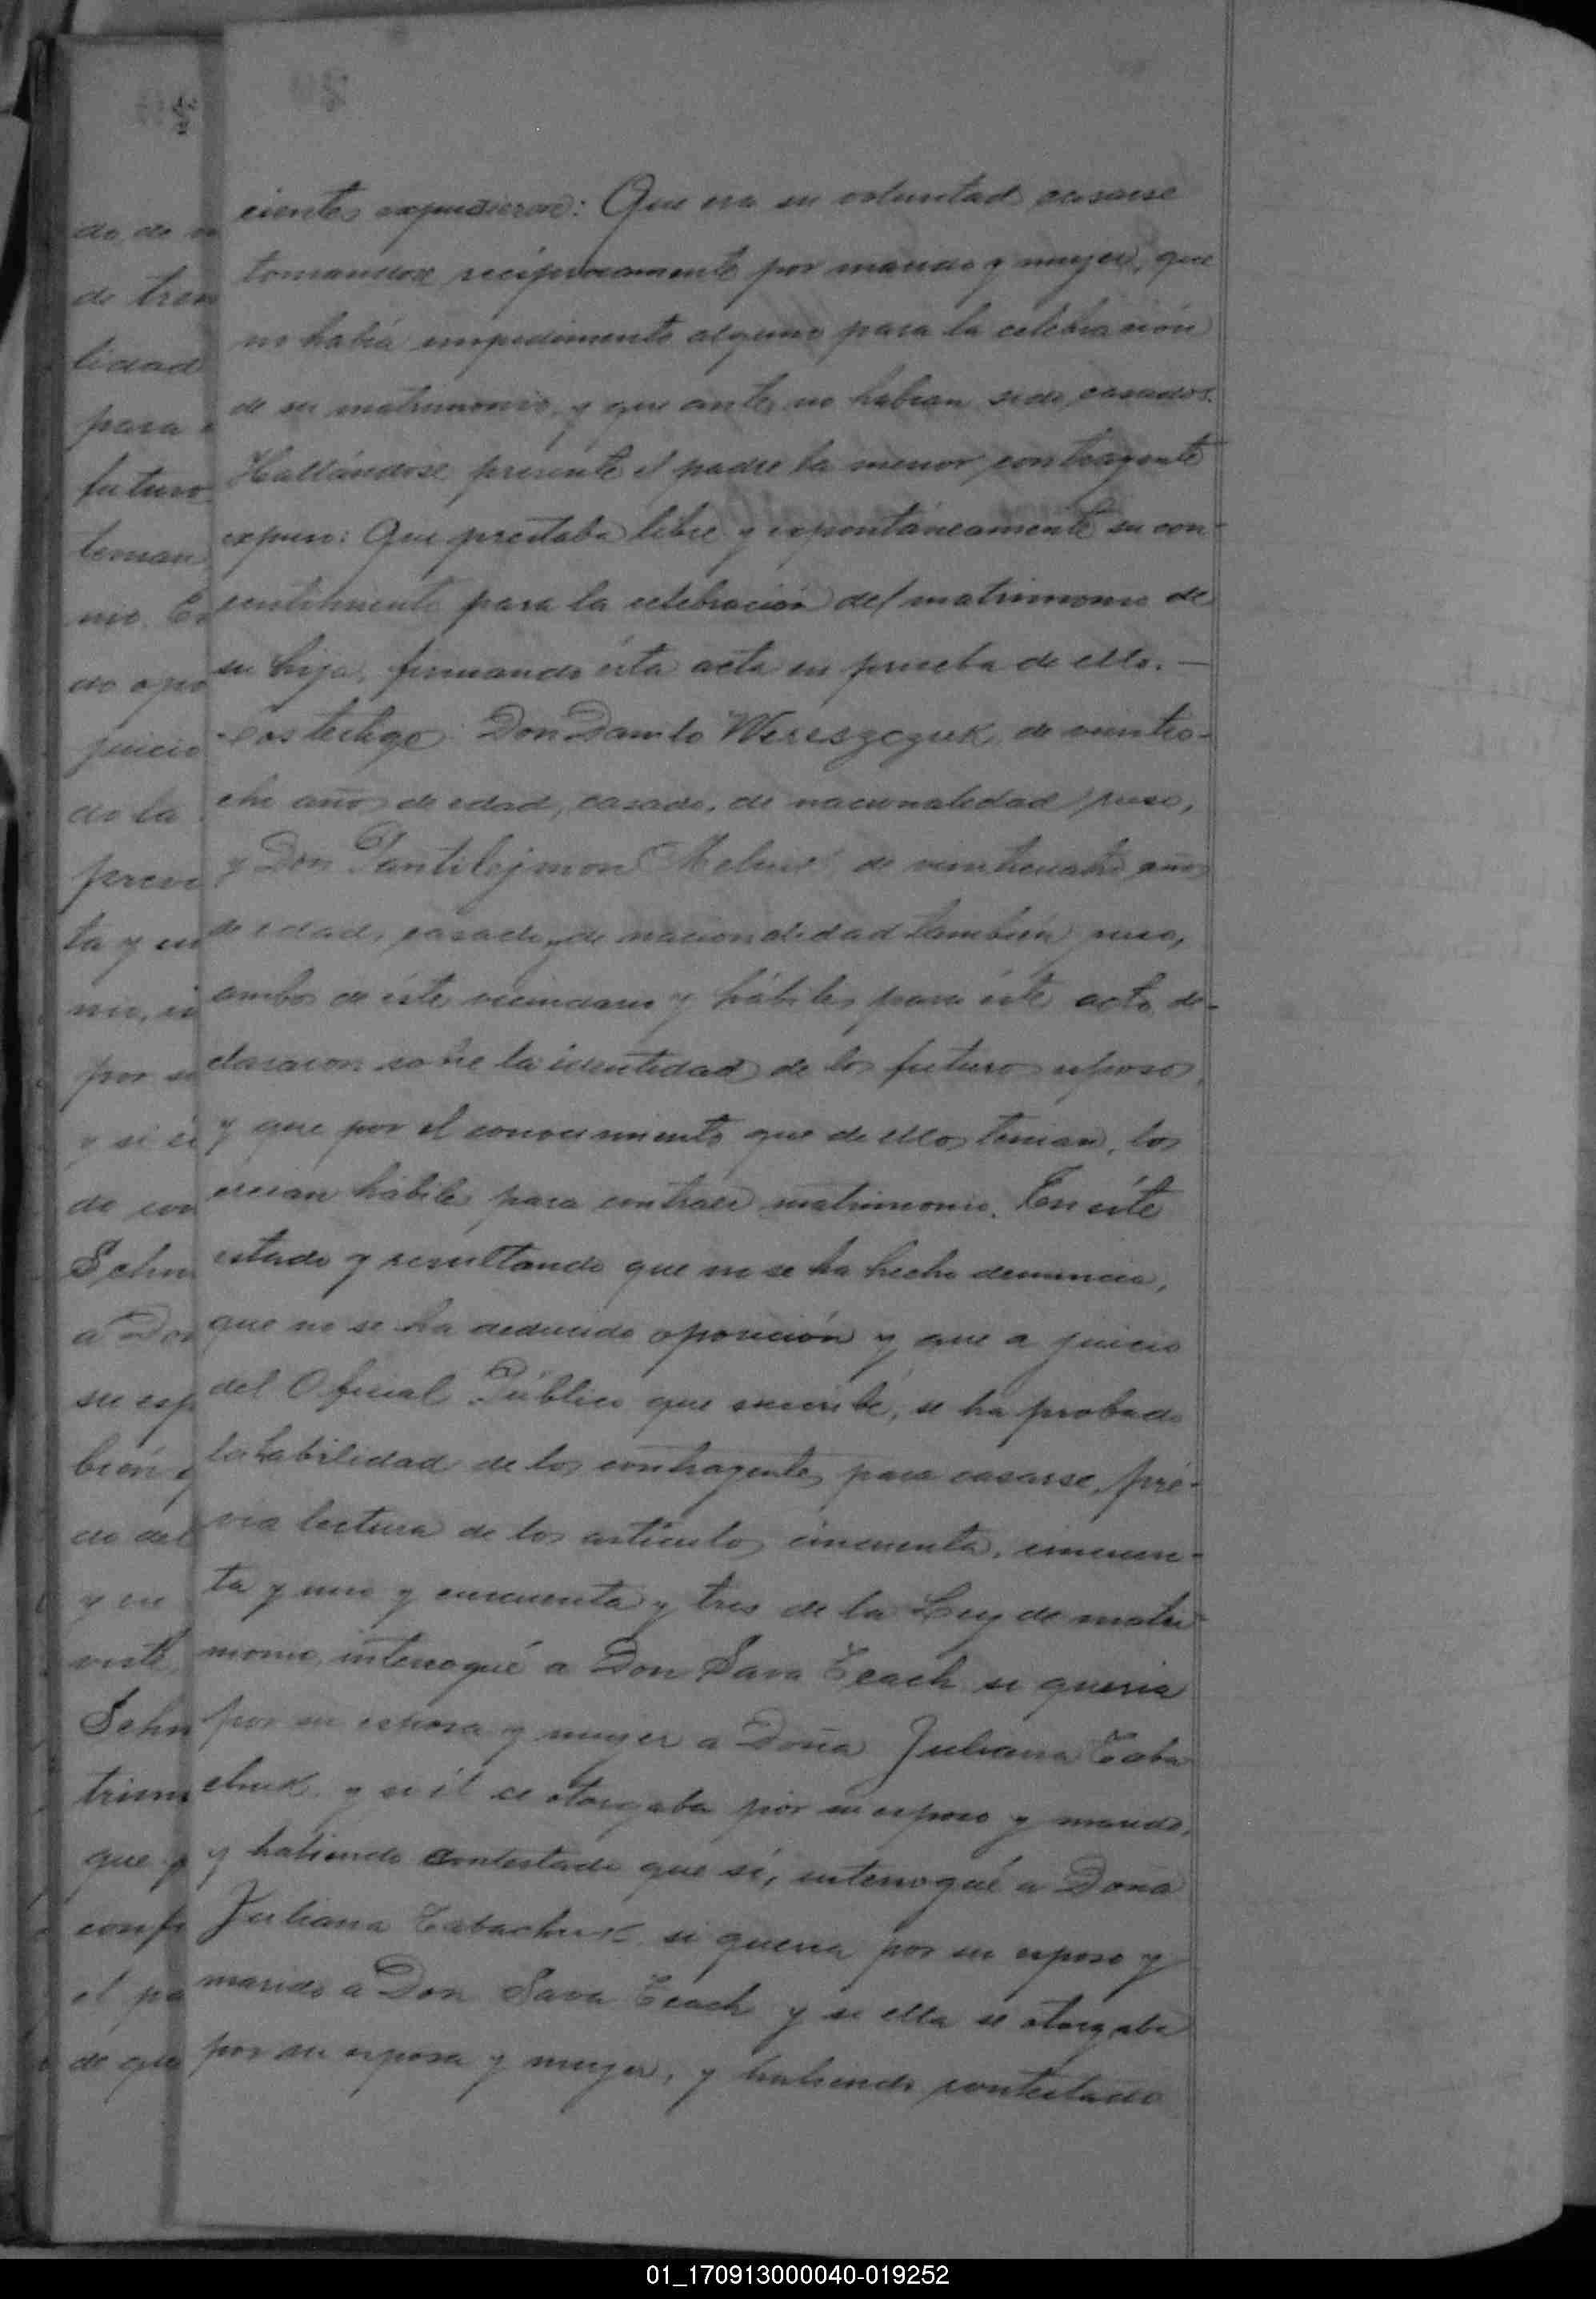 cientes expusieron: Que era su voluntad casarse
tomandose recíprocamente por marido y mujer, que
no había impedimento alguno para la celebración
de su matrimonio, y que antes no habian sido casados.
Hallándose presente el padre la menor contrayente
expuso: Que prestaba libre y espontáneamente su con-
sentimiento para la celebración del matrimonio de
su hija, firmando ésta acta en prueba de ello. —
Los testigos Don Danilo Wereszczuk, de veintio-
cho años de edad, casado, de nacionalidad ruso,
y Don Pantilejmon Melnik, de veinticuatro años
de edad, casado, de nacionalidad también ruso,
ambos de éste vecindario y hábiles para éste acto, de-
clararon sobre la identidad de los futuros esposos,
y que por el conocimiento que de ellos tenian, los
creian hábiles para contraer matrimonio. En éste
estado y resultando que no se ha hecho denuncia,
que no se ha deducido oposición y que a juicio
del Oficial Público que suscribe, se ha probado
la habilidad de los contrayentes para casarse, pré-
via lectura de los artículos cincuenta, cincuen-
ta y uno y cincuenta y tres de la Ley de matri-
monio, interrogué a Don Sava Tcach si queria
por su esposa y mujer a Doña Juliana Taba
chuk y si él se otorgaba por su esposo y marido,
y habiendo contestado que sí, interrogué a Doña
Juliana Tabachuk si queria por su esposo y
marido a Don Sava Tcach y si ella se otorgaba
por su esposa y mujer, y habiendo contestado
do de
de tren
lidad
para
futuro
teman
nio. En
do opo
juicio
do la
previ
ta y un
por
y si
do con
Schn
a Don
su esp
bién
do del
y en
Schn
trim
que
conf
el pa
de que
01_170913000040-019252